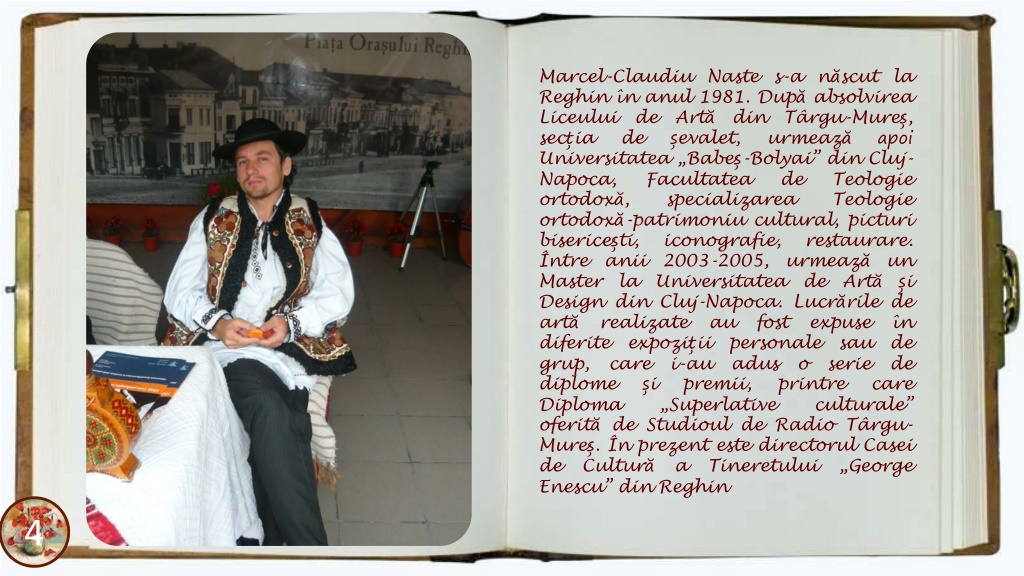 Piața Orașului Reghi
Marcel-Claudiu Naste s-a născut la
Reghin în anul 1981. După absolvirea
Liceului de Artă din Târgu-Mureș,
secția de șevalet, urmează apoi
Universitatea „Babeș-Bolyai” din Cluj-
Napoca, Facultatea de Teologie
ortodoxă, specializarea Teologie
ortodoxă-patrimoniu cultural, picturi
bisericești, iconografie, restaurare.
Între anii 2003-2005, urmează un
Master la Universitatea de Artă și
Design din Cluj-Napoca. Lucrările de
artă realizate au fost expuse în
diferite expoziții personale sau de
grup, care i-au adus o serie de
diplome și premii, printre care
Diploma „Superlative culturale”
oferită de Studioul de Radio Târgu-
Mureș. În prezent este directorul Casei
de Cultură a Tineretului „George
Enescu” din Reghin
4